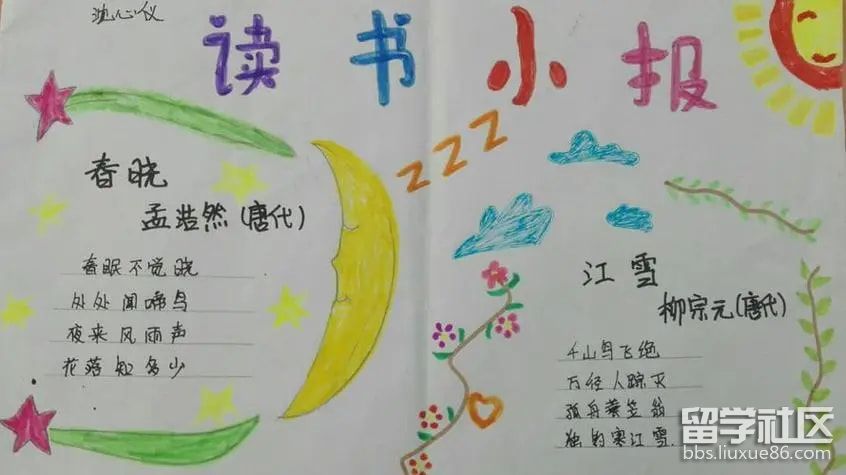 沈心仪
读书小报
zzz
春晓
孟浩然(唐代)
春眠不觉晓
处处闻啼鸟
夜来风雨声
花落知多少
江雪
柳宗元(唐代)
千山鸟飞绝
万径人踪灭
孤舟蓑笠翁
独钓寒江雪.
留学社区
bbs.liuxue86.com